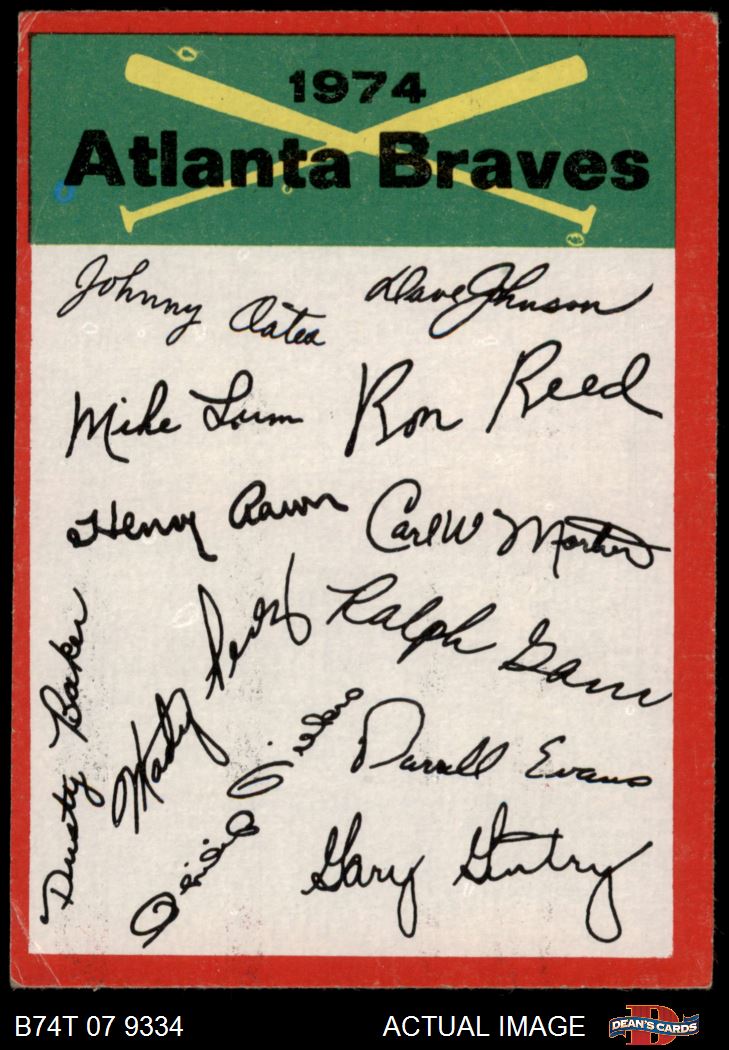 1974
Atlanta Braves
Johnny Oates
Dave Johnson
Mike Lum
Ron Reed
Henry Aaron
Carl W Morton
Dusty Baker
Marty Perez
Ralph Garr
Darrell Evans
Gary Gentry
B74T 07 9334
ACTUAL IMAGE
D
DEAN'S CARDS